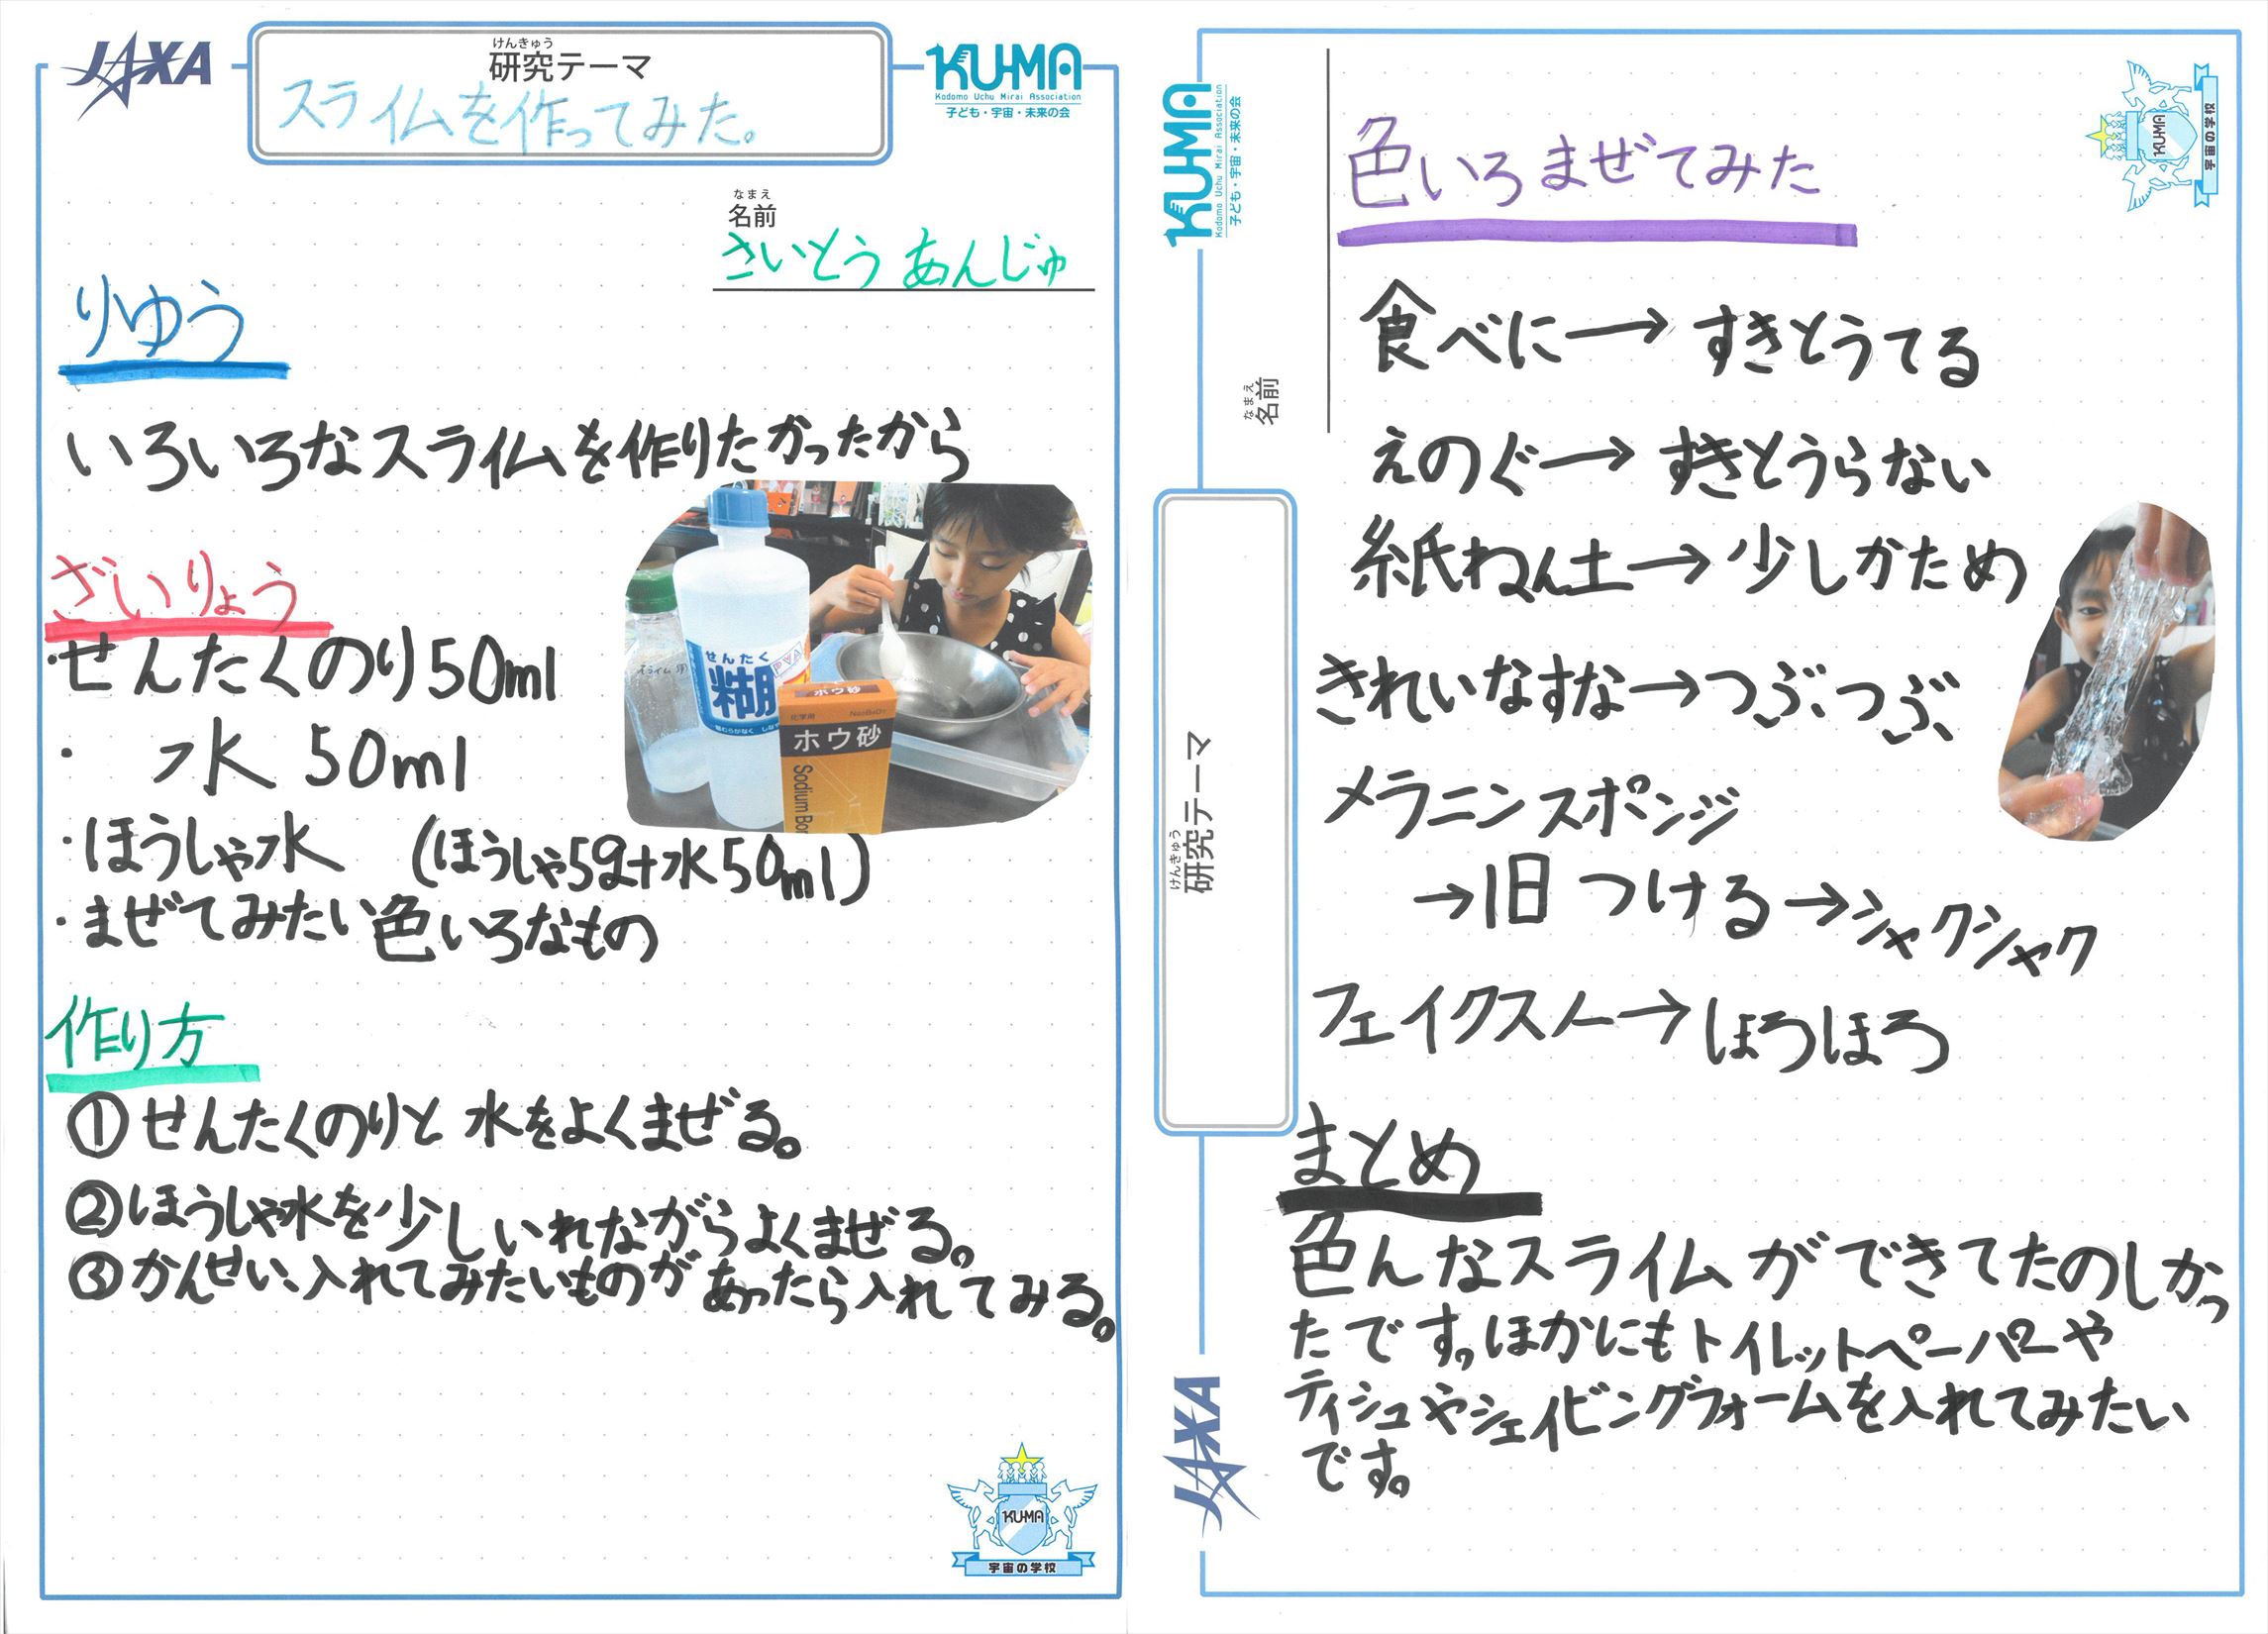 JAXA
けんきゅう
研究テーマ
スライムを作ってみた。
KU-MA
Kodomo Uchu Mirai Association
子ども・宇宙・未来の会
なまえ
名前
さいとう あんじゅ
りゆう
いろいろなスライムを作りたかったから
ざいりょう
・せんたくのり50ml
・ 水 50ml
・ほうしゃ水 (ほうしゃ5g+水50ml)
・まぜてみたい色いろなもの
スライム用
せんたく
糊
ホウ砂
ホウ砂
Sodium Bor
作り方
①せんたくのりと 水をよくまぜる。
②ほうしゃ水を少しいれながらよくまぜる。
③かんせい、入れてみたいものがあったら入れてみる。
KU-MA
宇宙の学校
KU-MA
Kodomo Uchu Mirai Association
子ども・宇宙・未来の会
なまえ
名前
けんきゅう
研究テーマ
JAXA
KU-MA
宇宙の学校
色いろまぜてみた
食べに→すきとうてる
えのぐ→すきとうらない
紙ねん土→少しかため
きれいなすな→つぶつぶ
メラニンスポンジ
→1日 つける→シャクシャク
フェイクスノー→ほろほろ
まとめ
色んなスライムができてたのしかっ
たです。ほかにもトイレットペーパーや
ティシュやシェイビングフォームを入れてみたい
です。